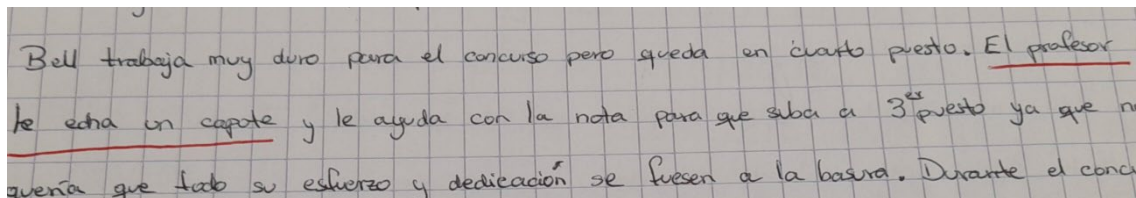 Bell trabaja muy duro para el concurso pero queda en cuarto puesto. El profesor
le echa un capote y le ayuda con la nota para que suba a 3er puesto ya que
quería que todo su esfuerzo y dedicación se fuesen a la basura. Durante el